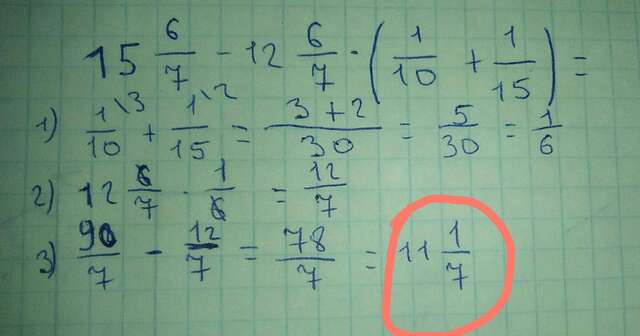 15 6/7 - 12 6/7 · (1/10 + 1/15) =
1) 1/10 \3 + 1/15 \2 = 3+2/30 = 5/30 = 1/6
2) 12 6/7 · 1/6 = 12/7
3) 90/7 - 12/7 = 78/7 = 11 1/7